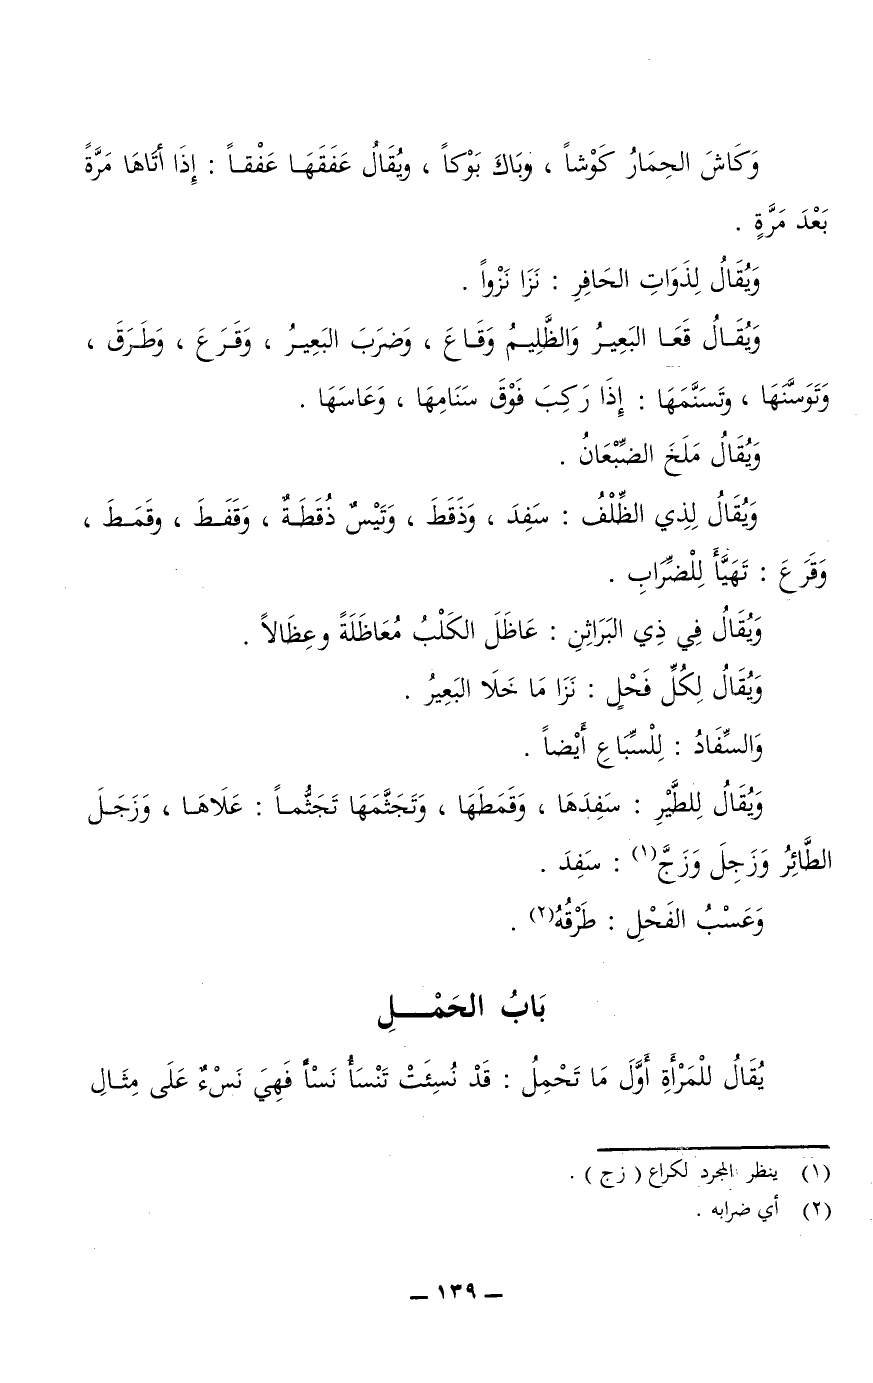 وَكَاشَ الحِمَارُ كَوْشاً ، وبَاكَ بَوْكاً ، ويُقَالُ عَفَقَهَا عَفْقاً : إِذَا أتَاهَا مَرَّةً
بَعْدَ مَرَّةٍ .
وَيُقَالُ لِذَوَاتِ الحَافِرِ : نَزَا نَزْواً .
وَيُقَالُ قَعَا البَعِيرُ وَالظَّلِيمُ وَقَاعَ ، وَضرَبَ البَعِيرُ ، وَقَرَعَ ، وَطَرَقَ ،
وَتَوَسَّنَهَا ، وتَسَنَّمَهَا : إِذَا رَكِبَ فَوْقَ سَنَامِهَا ، وَعَاسَهَا .
وَيُقَالُ مَلَخَ الضِّبْعَانُ .
وَيُقَالُ لِذِي الظِّلْفُ : سَفِدَ ، وَذَقَطَ ، وَتَيْسٌ ذُقَطَةٌ ، وَقَفَطَ ، وقَمَطَ ،
وَقَرَعَ : تَهَيَّأَ لِلْضِّرَابِ .
وَيُقَالُ فِي ذِي البَرَاثِنِ : عَاظَلَ الكَلْبُ مُعَاظَلَةً وعِظَالاً .
وَيُقَالُ لِكُلِّ فَحْلٍ : نَزَا مَا خَلَا البَعِيرُ .
وَالسِّفَادُ : لِلْسِّبَاعِ أَيْضاً .
وَيُقَالُ لِلطَّيْرِ : سَفِدَهَا ، وَقَمَطَهَا ، وَتَجَثَّمَهَا تَجَثُّماً : عَلَاهَا ، وَزَجَلَ
الطَّائِرُ وَزَجِلَ وَزَجَّ(١) : سَفِدَ .
وَعَسْبُ الفَحْلِ : طَرْقُهُ(٢) .
بَابُ الحَمْـــلِ
يُقَالُ للْمَرْأَةِ أَوَّلَ مَا تَحْمِلُ : قَدْ نُسِئَتْ تَنْسَأُ نَسْأً فَهِيَ نَسْءٌ عَلَى مِثَالِ
(١) ينظر المجرد لكراع ( زج ) .
(٢) أي ضرابه .
– ١٣٩ –